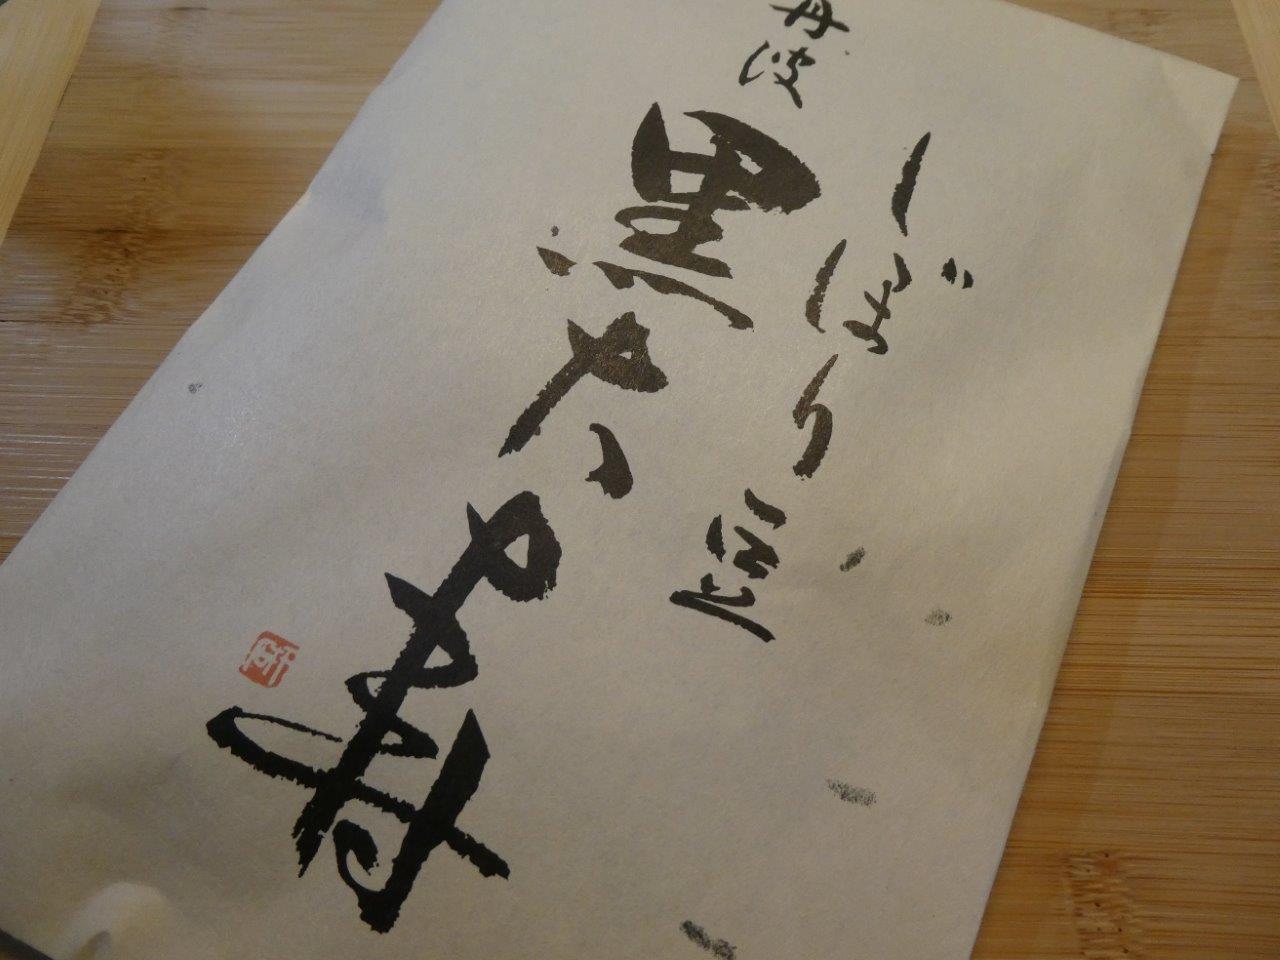 しぼり豆
丹波黒大寿